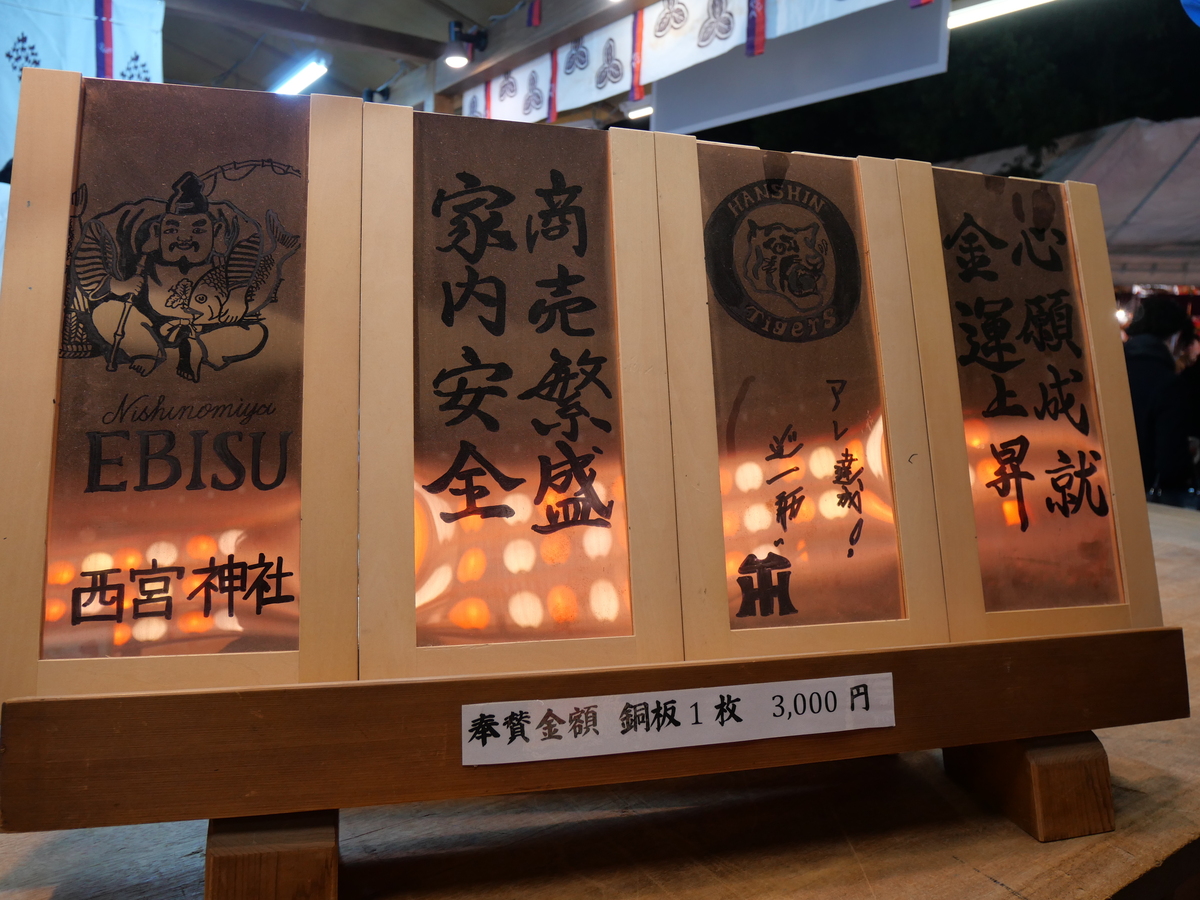 Nishinomiya
EBISU
西宮神社
商売繁盛
家内安全
HANSHIN
TIGERS
アレ
心願成就
金運上昇
奉賛金額 銅板1枚 3,000円